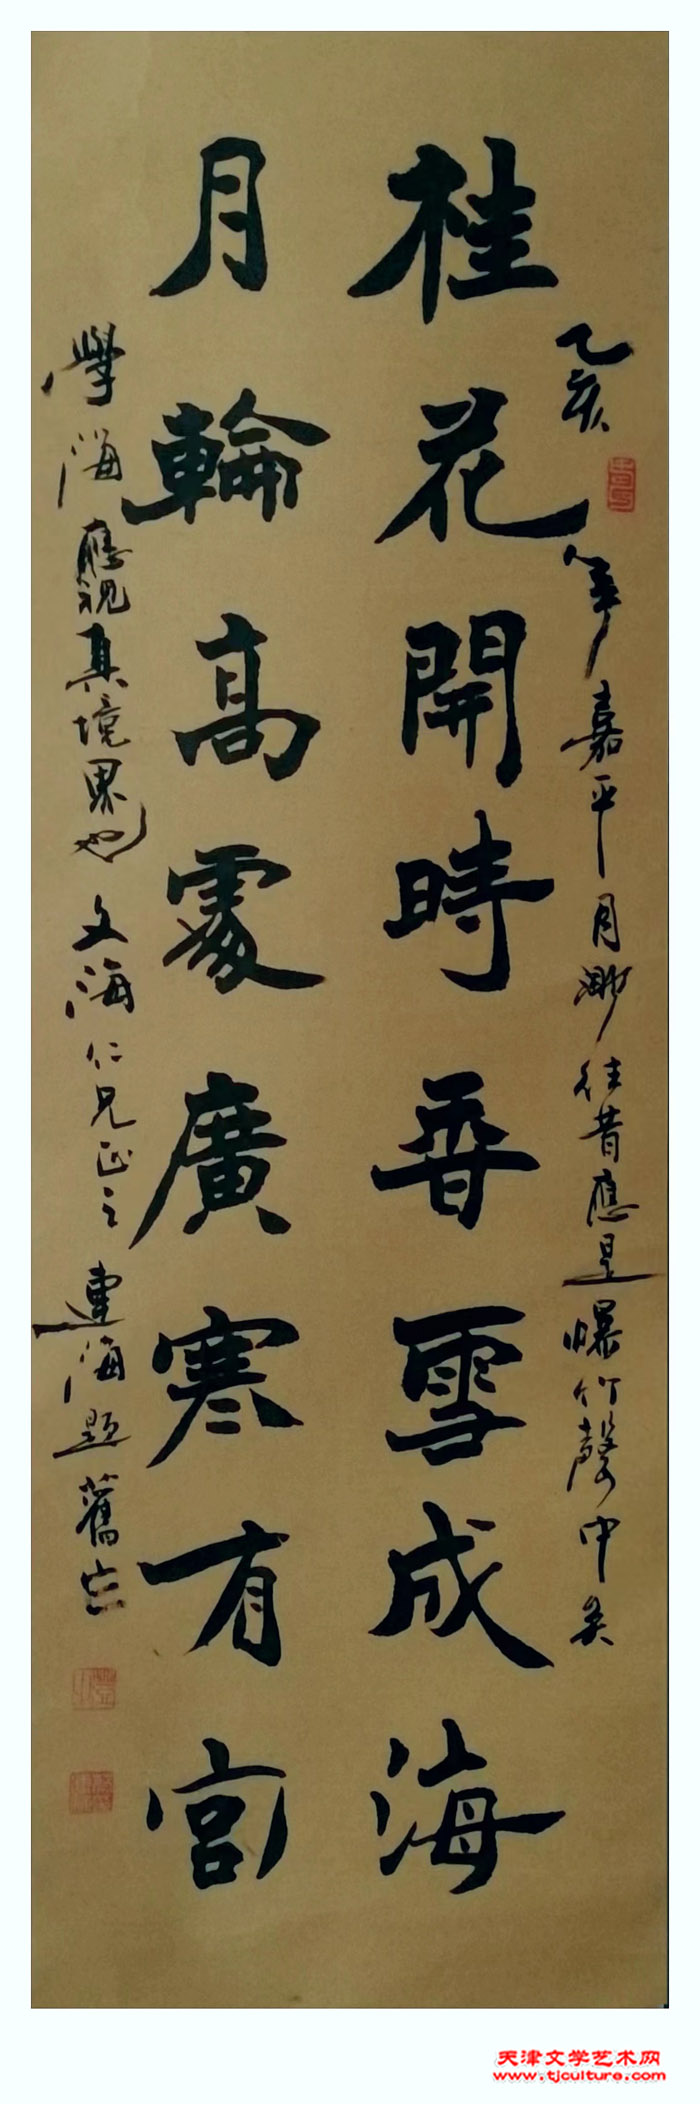 桂花開時香雪成海
月輪高處廣寒有宮
乙亥年嘉平月 往昔應是爆竹聲中矣
學海應視真境界也 文海仁兄正之 連海題舊
天津文学艺术网
www.tjculture.com